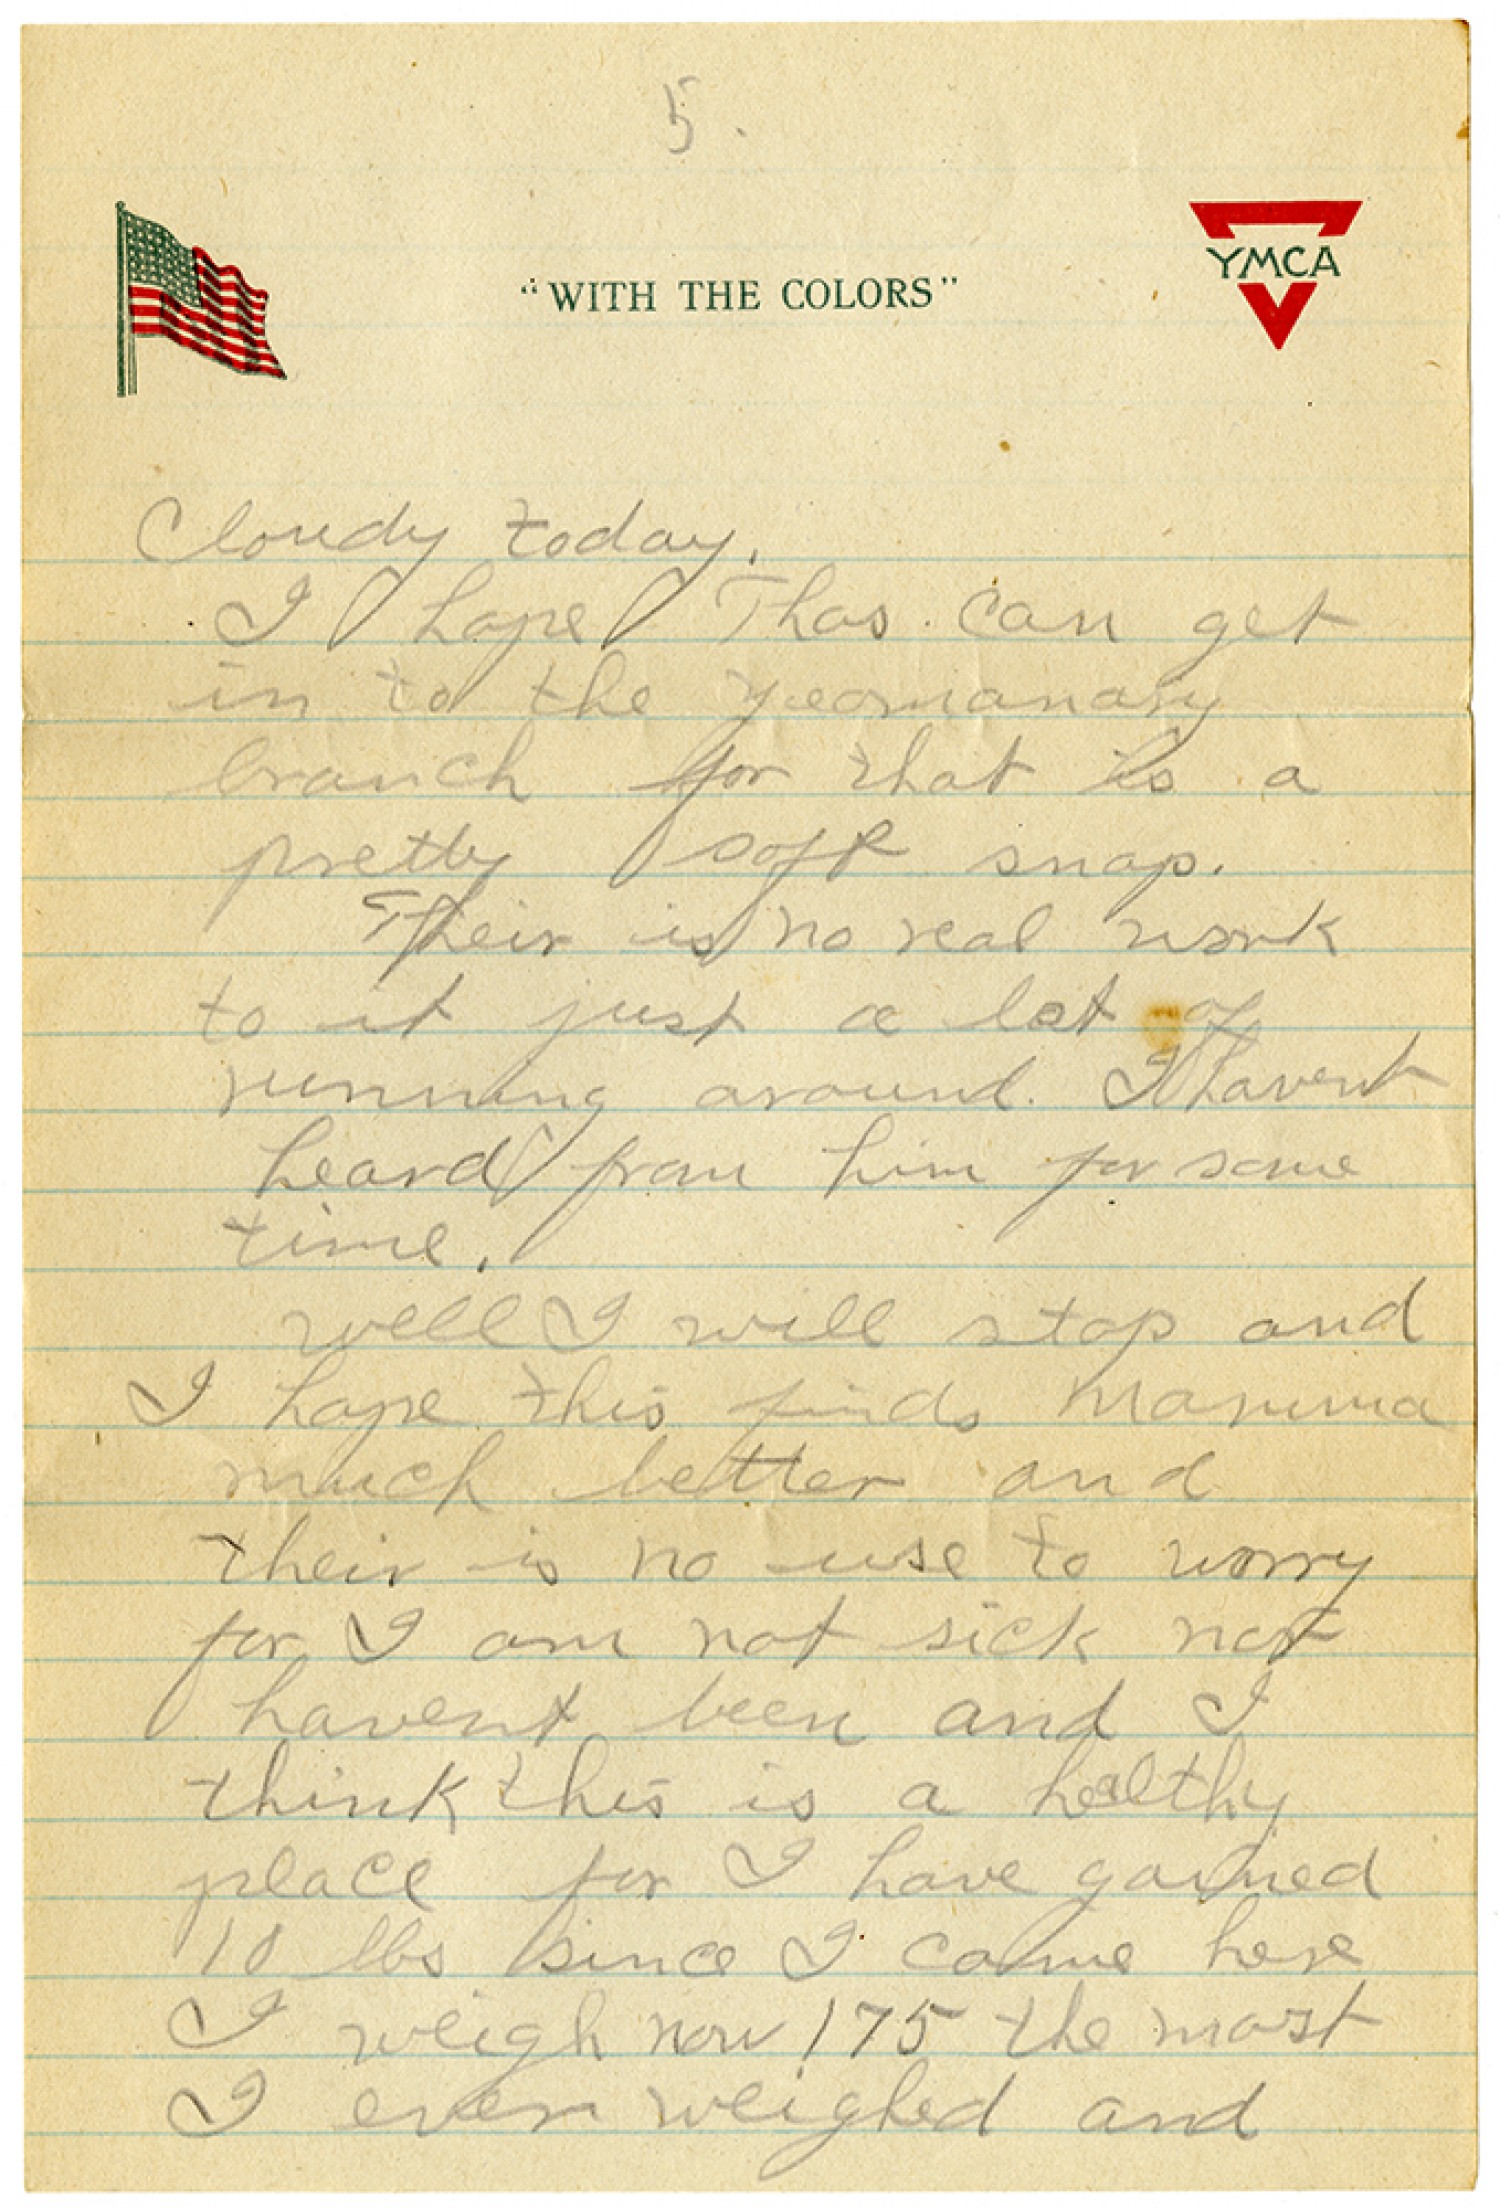 5.
"WITH THE COLORS"
YMCA
Cloudy today.
I hope Thos. can get
in to the yeomanary
branch for that is a
pretty soft snap.
Their is no real work
to it just a lot of
running around. I havent
heard from him for some
time.
well I will stop and
I hope this finds Mamma
much better and
their is no use to worry
for I am not sick nor
havent been and I
think this is a healthy
place for I have gained
10 lbs since I came here
I weigh now 175 the most
I ever weighed and